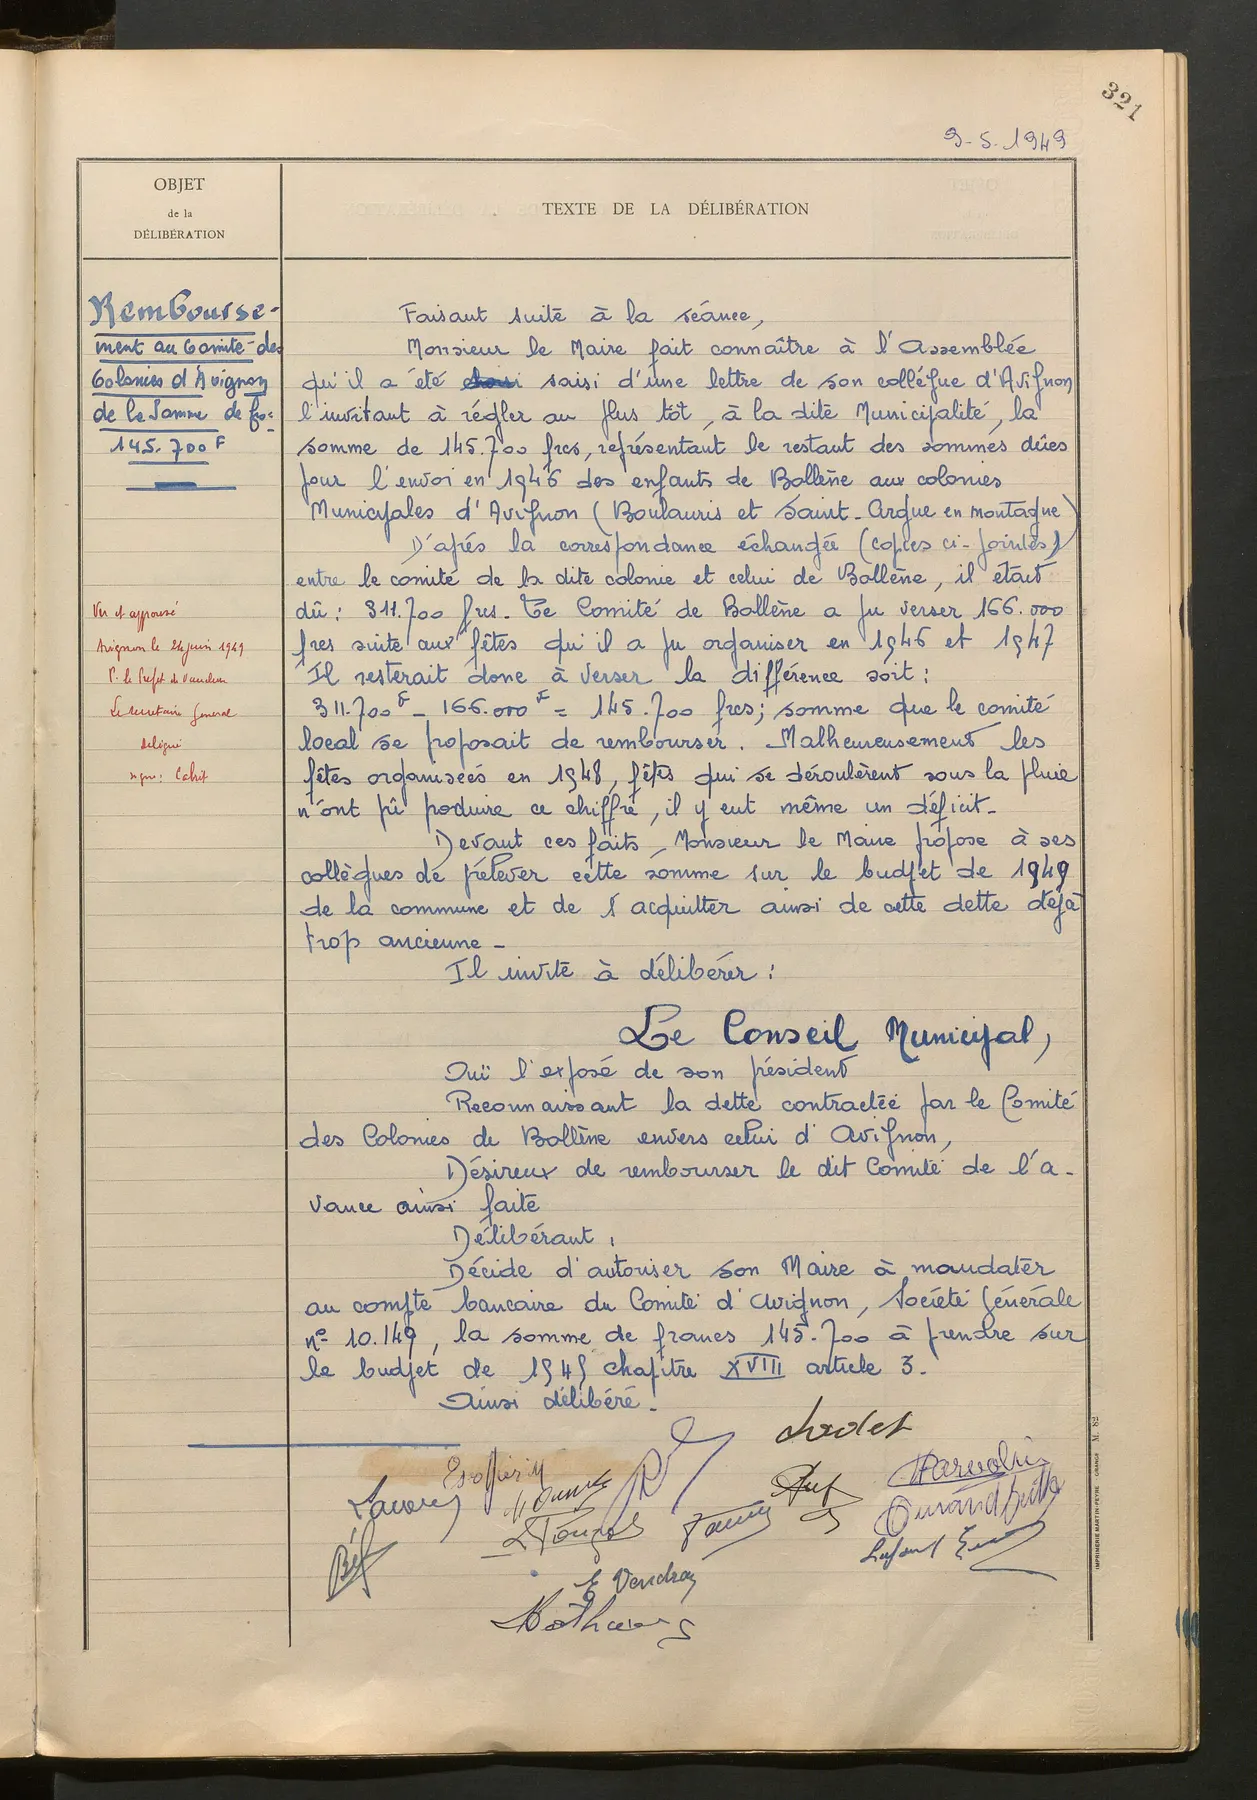 321
9-5-1949
OBJET
de la
DÉLIBÉRATION
TEXTE DE LA DÉLIBÉRATION
Rembourse-
ment au Comité des
Colonies d'Avignon
de la Somme de frs:
145.700 F
Vu et approuvé
Avignon le 24 juin 1949
P. le Préfet de Vaucluse
Le Secrétaire Général
délégué
signé:
Faisant suite à la séance,
Monsieur le Maire fait connaître à l'Assemblée
qu'il a été saisi d'une lettre de son collègue d'Avignon
l'invitant à régler au plus tôt, à la dite Municipalité, la
somme de 145.700 frcs, représentant le restant des sommes dûes
pour l'envoi en 1946 des enfants de Bollène aux colonies
Municipales d'Avignon (Boulauris et Saint-Argue en montagne)
D'après la correspondance échangée (copies ci-jointes)
entre le comité de la dite colonie et celui de Bollène, il était
dû: 311.700 frcs. Le Comité de Bollène a pu verser 166.000
frcs suite aux fêtes qu'il a pu organiser en 1946 et 1947
Il resterait donc à verser la différence soit:
311.700 F - 166.000 F = 145.700 frcs; somme que le comité
local se proposait de rembourser. Malheureusement les
fêtes organisées en 1948, fêtes qui se déroulèrent sous la pluie
n'ont pû poduire ce chiffre, il y eut même un déficit-
Devant ces faits, Monsieur le Maire propose à ses
collègues de prélever cette somme sur le budget de 1949
de la commune et de s'acquitter ainsi de cette dette déjà
trop ancienne-
Il invite à délibérer:
Le Conseil Municipal,
Ouï l'exposé de son président
Reconnaissant la dette contractée par le Comité
des Colonies de Bollène envers celui d'Avignon,
Désireux de rembourser le dit Comité de l'a-
vance ainsi faite
Délibérant:
Décide d'autoriser son Maire à mandater
au compte bancaire du Comité d'Avignon, Société Générale
n° 10.149, la somme de francs 145.700 à prendre sur
le budget de 1949 chapitre XVIII article 3.
Ainsi délibéré.
E Vendran
IMPRIMERIE MARTIN-PEYRE - ORANGE M. 82